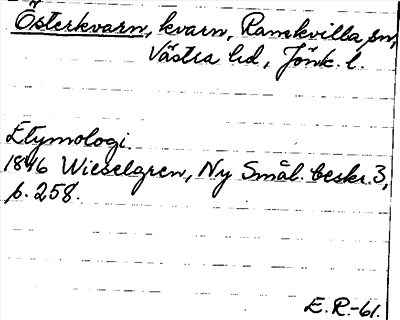 Österkvarn, kvarn, Ramkvilla sn,
Västra hd, Jönk. l.
Etymologi.
1846 Wieselgren, Ny Smål. beskr. 3,
p. 258.
E.R.-61.